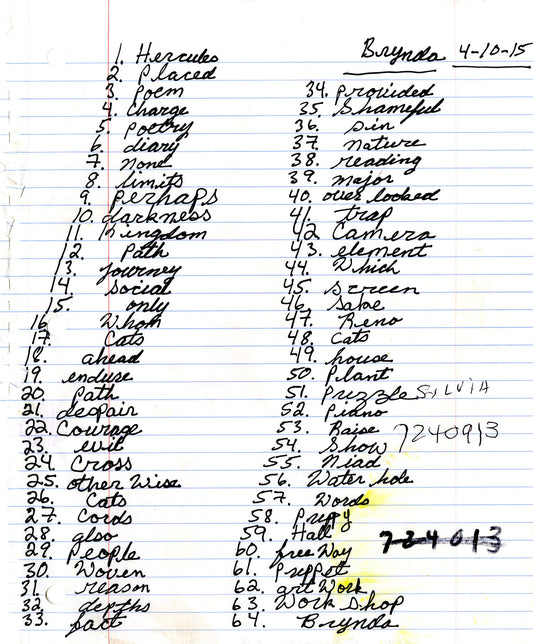 Brynda 4-10-15
1. Hercules
2. Placed
3. Poem
4. Charge
5. Poetry
6. diary
7. None
8. limits
9. perhaps
10. darkness
11. Kingdom
12. Path
13. journey
14. social
15. only
16. Whom
17. Cats
18. ahead
19. endure
20. Path
21. despair
22. Courage
23. evil
24. Cross
25. other Wise
26. Cats
27. Cords
28. also
29. People
30. Woven
31. reason
32. depths
33. fact
34. provided
35. Shameful
36. sin
37. nature
38. reading
39. major
40. over looked
41. trap
42 Camera
43. element
44. Which
45. screen
46. Sake
47. Reno
48. Cats
49. house
50. Plant
51. Puzzle SylViA
52. Piano
53. Raise
7240913
54. Show
55. Niad
56. Water hole
57. Words
58. Puppy
59. Hall
724013
60. free Way
61. Puppet
62. art Work
63. Work Shop
64. Brynda